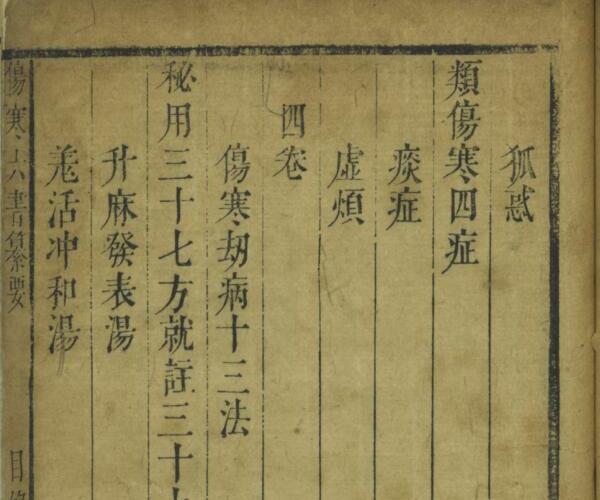 狐惑
類傷寒四症
痰症
虛煩
四卷
傷寒刼病十三法
秘用三十七方就註三十
升麻發表湯
羗活冲和湯
傷寒六書纂要
目